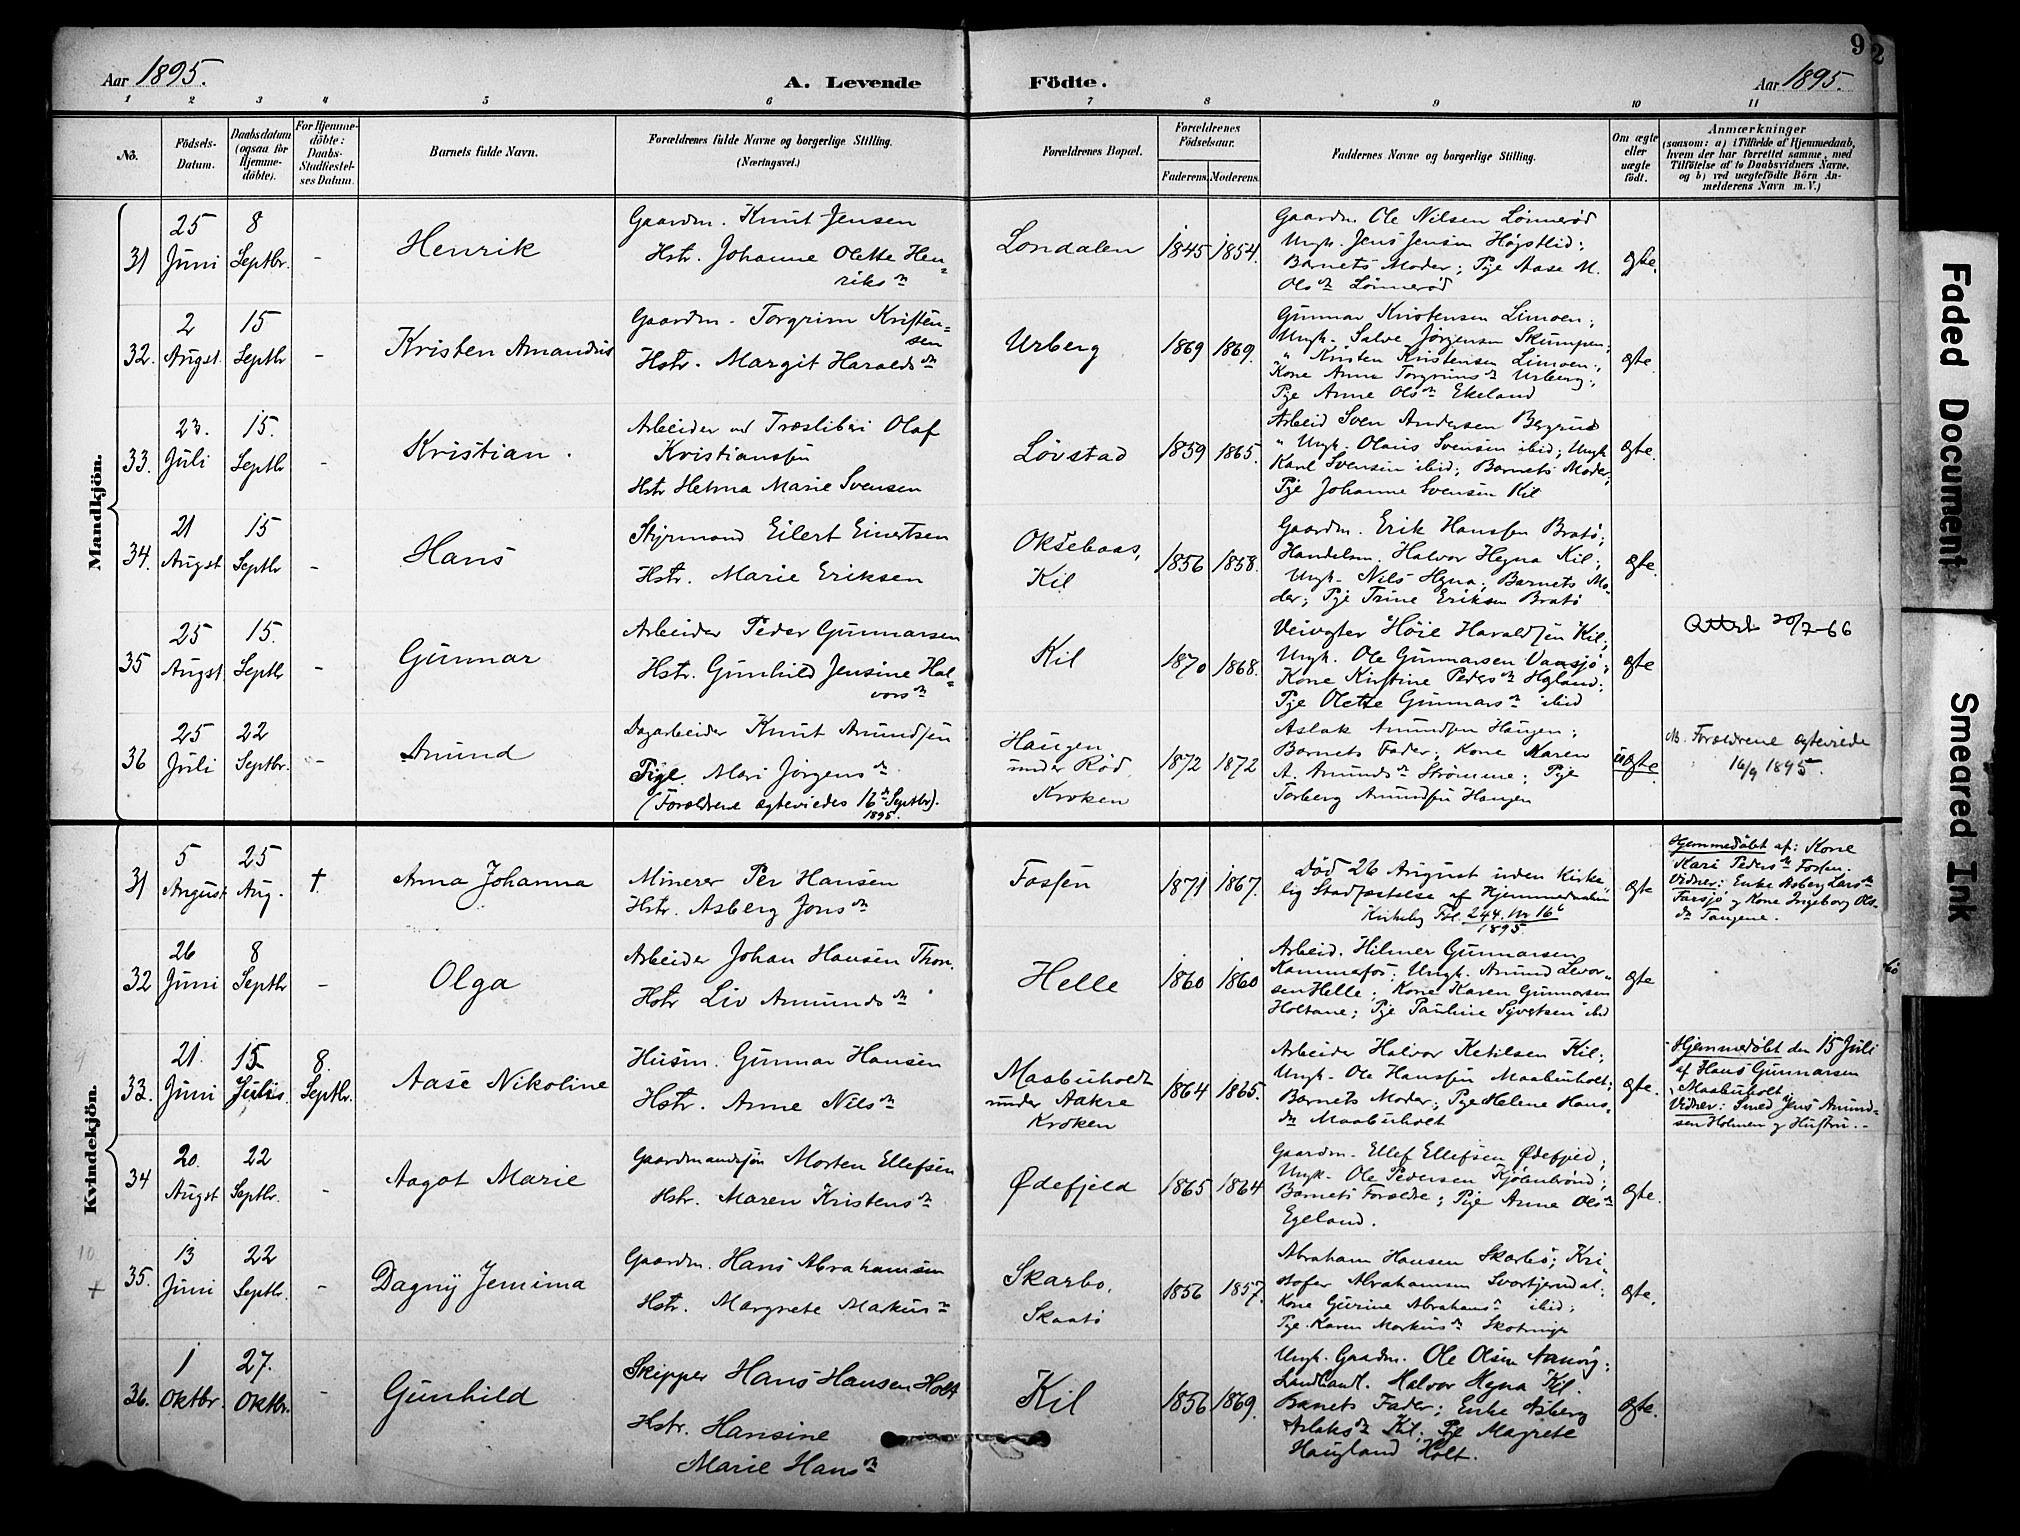 Aar 1895.
A. Levende
Födte.
Aar 1895.
9
2
1 2 3 4 5 6 7 8 9 10 11
No.
Födsels-
Datum.
Daabsdatum
(ogsaa for
Hjemme-
döbte).
For Hjemme-
döbte:
Daabs-
Stadfæstel-
ses Datum.
Barnets fulde Navn.
Forældrenes fulde Navne og borgerlige Stilling.
(Næringsvei.)
Forældrenes Bopæl.
Forældrenes
Födselsaar.
Faderens. Moderens.
Faddernes Navne og borgerlige Stilling.
Om ægte
eller
uægte
födt.
Anmærkninger
(saasom: a) i Tilfælde af Hjemmedaab,
hvem der har forrettet samme, med
Tilföielse af to Daabsvidners Navne,
og b) ved uægtefödte Börn An-
melderens Navn m. V.)
Mandkjön.
31
25 Juni
8 Septbr.
-
Henrik
Gaardm. Knut Jensen
Hstr. Johanne Olette Hen-
riksdn
Londalen
1845 1854.
Gaardm. Ole Nilsen Lönneröd
Ungk. Jens Jensen Högstlid;
Barnets Moder; Pige Aase M.
Olsdn Lönneröd
ægte.
32.
2 Augst
15 Septbr
-
Kristen Amandus
Gaardm. Torgrim Kristen-
sen
Hstr. Margit Haraldsdn
Urberg
1869 1869.
Gunnar Kristensen Limoen;
Ungk. Salve Jörgensen Skumpen;
" Kristen Kristensen Limoen;
Kone Anne Torgrimsdn Urberg;
Pge Anne Olsdn Ekeland
ægte.
33.
23. Juli
15. Septbr
-
Kristian.
Arbeider ved Træsliberi Olaf
Kristianssen
Hstr Helma Marie Svensen
Lövstad
1859 1865.
Arbeid Sven Andersen
" Ungk. Olaus Svensen ibid; Ungk
Karl Svensen ibid; Barnets Moder;
Pge Johanne Svensen Kil
ægte.
34.
21 Augst
15 Septbr
-
Hans
Styrmand Eilert Einertsen
Hstr. Marie Eriksen
Oksebaas,
Kil
1856 1858.
Gaardm. Erik Hanssen Bratö;
Handelsm. Halvor Hegna Kil;
Ungk. Nils Hegna; Barnets Mo-
der; Pge Trine Eriksen Bratö
ægte.
35
25 Augst.
15. Septbr
-
Gunnar
Arbeider Peder Gunnarsen
Hstr. Gunhild Jensine Hal-
vorsdn
Kil
1870 1868.
Veivogter Höie Haraldsen Kil;
Ungk. Ole Gunnarsen Vaasjö;
Kone Kirstine Pedersdn Hegland;
Pge Olette Gunnarsdn ibid
ægte
Attst 20/7-66
36
25 Juli
22 Septbr.
-
Anund
Dagarbeider Knut Anundsen
Pige Mari Jörgensdn
(Forældrene ægteviedes 16de Septbr).
1895.
Haugen
under Röd,
Kroken
1872 1872
Aslak Anundsen Haugen;
Barnets Fader; Kone Karen
A. Anundsdn Strömme; Pge
Torberg Anundsen Haugen
uægte.
NB. Forældrene ægteviede
16/9 1895.
Kvindekjön.
31
5 August
25 Aug.
†
Anna Johanna
Minerer Per Hansen
Hstr. Asberg Jonsdn
Fossen
1871 1867.
Död 26 August uden Kirke-
lig Stadfæstelse af Hjemmedaaben
Kirkebg Fol. 244. Nr 16
1895.
ægte
Hjemmedöbt af: Kone
Kari Pedersdn Fossen.
Vidner: Enke Asberg Larsdn
Farsjö og Kone Ingeborg Ols-
dn Tangene.
32
26 Juni
8 Septbr
Olga
Arbeider Johan Hansen Thon.
Hstr Liv Amundsdn
Helle
1860 1860
Arbeid. Hilmer Gunnarsen
Kammafos; Ungk. Anund Levor-
sen Helle; Kone Karen Gunnarsen
Holtane; Pge Pauline Syvertsen ibid
ægte
33.
21. Juni
15. Julis.
8. Septbr.
Aase Nikoline
Husm. Gunnar Hansen
Hstr. Anne Nilsdn
Maabuholdt
under Aakre
Kroken
1864 1865.
Arbeider Halvor Ketilsen Kil;
Ungk. Ole Hanssen Maabuholt;
Barnets Moder; Pge Helene Hans-
dn Maabuholt
ægte.
Hjemmedöbt den 15 Juli
af Hans Gunnarsen
Maabuholt.
Vidner: Smed Jens Anund-
sen Holmen og Hustru.-
34
20. Augst
22 Septbr.
-
Aagot Marie
Gaardmandssön Morten Ellefsen
Hstr. Maren Kristensdn
Ödefjeld
1865 1864
Gaardm. Ellef Ellefsen Ödefjeld;
Ungk. Ole Pedersen Kjölnbrönd;
Barnets Forældre; Pige Anne Olsdn
Egeland.
ægte.
35.
13 Juni
22 Septbr.
-
Dagny Jemima
Gaardm. Hans Abrahamsen
Hstr. Margrete Markusdn
Skarbo,
Skaatö
1856 1857.
Abraham Hansen Skarbö; Kri-
stofer Abrahamsen Svartjerndal.
Kone Gurine Abrahamsdn ibid;
Pge Karen Markusdn
ægte.
36.
1 Oktbr.
27. Oktbr.
-
Gunhild
Skipper Hans Hansen Holt
Hstr. Hansine
Marie Hansdn
Kil
1856 1869.
Ungk. Gaardm. Ole Olsen
Landhandl. Halvor Hegna Kil.
Barnets Fader; Enke Asberg
Aslaksdn Kil; Pge Magrete
Haugland Holt.
ægte.
Faded Document
Smeared Ink